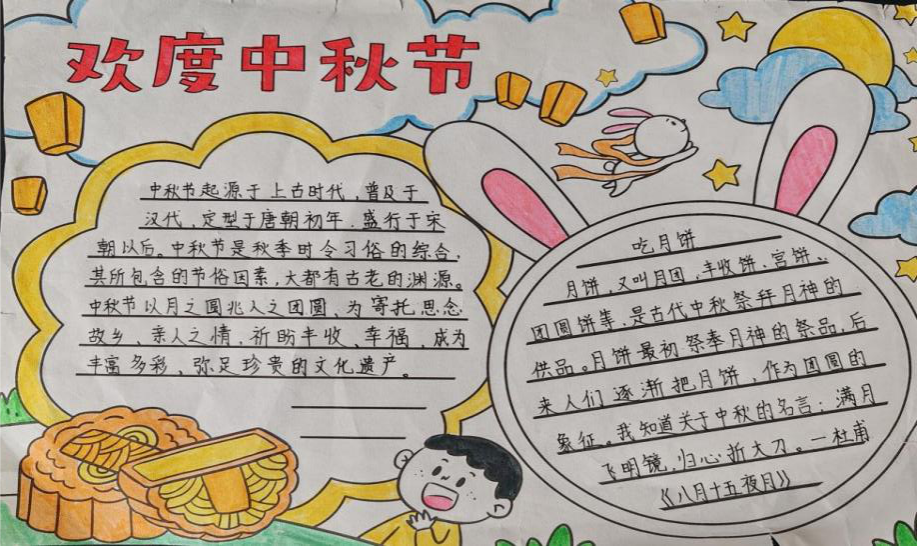 欢度中秋节
中秋节起源于上古时代，普及于
汉代，定型于唐朝初年，盛行于宋
朝以后。中秋节是秋季时令习俗的综合，
其所包含的节俗因素，大都有古老的渊源。
中秋节以月之圆兆人之团圆，为寄托思念
故乡、亲人之情，祈盼丰收、幸福，成为
丰富多彩、弥足珍贵的文化遗产。
吃月饼
月饼，又叫月团、丰收饼、宫饼、
团圆饼等，是古代中秋祭拜月神的
供品。月饼最初祭奉月神的祭品，后
来人们逐渐把月饼，作为团圆的
象征。我知道关于中秋的名言：满月
飞明镜，归心折大刀。一杜甫
《八月十五夜月》